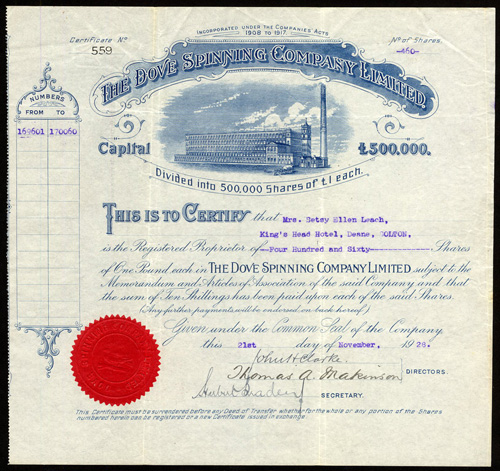 INCORPORATED UNDER THE COMPANIES ACTS
1908 TO 1917.
Certificate No
559
No of Shares.
-460-
THE DOVE SPINNING COMPANY LIMITED
NUMBERS
FROM TO
169601 170060
Capital £500,000.
Divided into 500,000 Shares of £1 each.
THIS IS TO CERTIFY that Mrs. Betsy Ellen Leach,
King's Head Hotel, Deane, BOLTON,
is the Registered Proprietor of Four Hundred and Sixty Shares
of One Pound each in THE DOVE SPINNING COMPANY LIMITED subject to the
Memorandum and Articles of Association of the said Company and that
the sum of Ten Shillings has been paid upon each of the said Shares.
(Any further payments will be endorsed on back hereof.)
Given under the Common Seal of the Company
this 21st day of November, 1928.
John H Clarke.
Thomas A. Makinson
DIRECTORS.
SECRETARY.
This Certificate must be surrendered before any Deed of Transfer whether for the whole or any portion of the Shares
numbered herein can be registered or a new Certificate issued in exchange.